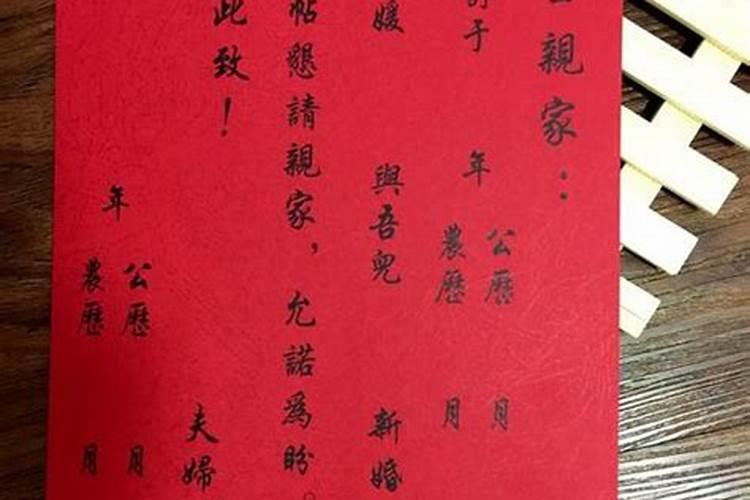 親家：
于 年 公歷 農歷 月 月
媛 與吾兒 新婚
帖懇請親家，允諾為盼。
此致！
夫婦
年 公歷 農歷 月 月